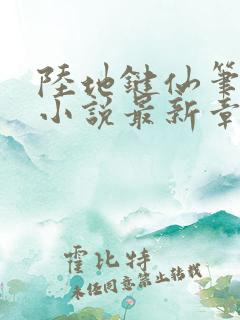 陸地鍵仙筆
小說最新章
霍比特
未经同意禁止转载